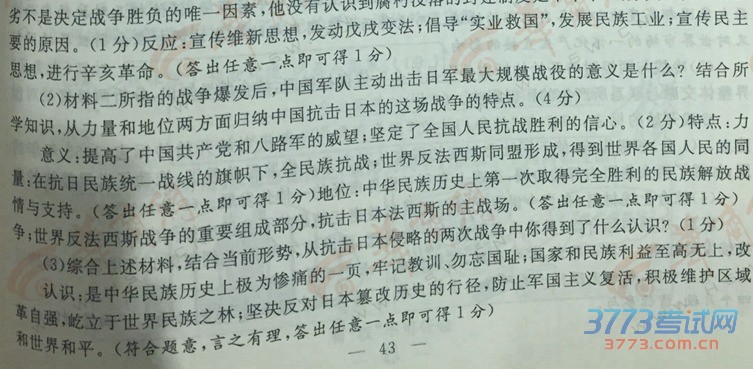 劣不是决定战争胜负的唯一因素,他没有认识到腐朽没落的封建制度是
要的原因。(1分)反应:宣传维新思想,发动戊戌变法;倡导“实业救国”,发展民族工业;宣传民主
思想,进行辛亥革命。(答出任意一点即可得1分)
(2)材料二所指的战争爆发后,中国军队主动出击日军最大规模战役的意义是什么?结合所
学知识,从力量和地位两方面归纳中国抗击日本的这场战争的特点。(4分)
意义:提高了中国共产党和八路军的威望;坚定了全国人民抗战胜利的信心。(2分)特点:力
量:在抗日民族统一战线的旗帜下,全民族抗战;世界反法西斯同盟形成,得到世界各国人民的同
情与支持。(答出任意一点即可得1分)地位:中华民族历史上第一次取得完全胜利的民族解放战
争;世界反法西斯战争的重要组成部分,抗击日本法西斯的主战场。(答出任意一点即可得1分)
(3)综合上述材料,结合当前形势,从抗击日本侵略的两次战争中你得到了什么认识?(1分)
认识:是中华民族历史上极为惨痛的一页,牢记教训、勿忘国耻;国家和民族利益至高无上,改
革自强,屹立于世界民族之林;坚决反对日本篡改历史的行径,防止军国主义复活,积极维护区域
和世界和平。(符合题意,言之有理,答出任意一点即可得1分)
— 43 —
3773考试网
3773.com.cn